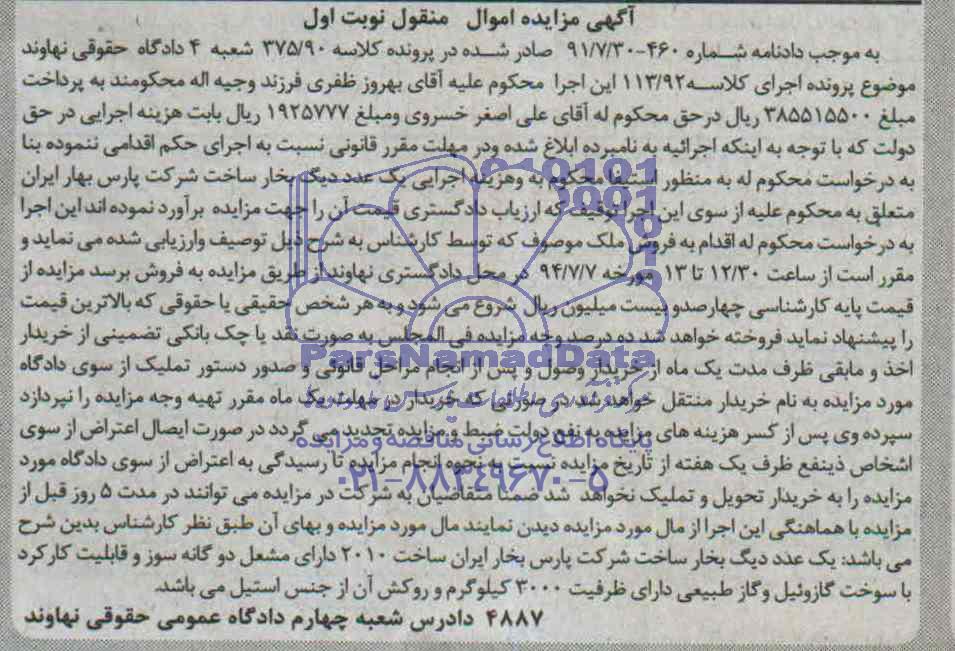 آگهی مزایده اموال منقول نوبت اول
به موجب دادنامه شماره ۴۶۰-۹۱/۷/۳۰ صادر شده در پرونده کلاسه ۳۷۵/۹۰ شعبه ۴ دادگاه حقوقی نهاوند
موضوع پرونده اجرای کلاسه ۱۱۳/۹۲ این اجرا محکوم علیه آقای بهروز ظفری فرزند وجیه اله محکومند به پرداخت
مبلغ ۳۸۵۵۱۵۵۰۰ ریال درحق محکوم له آقای علی اصغر خسروی ومبلغ ۱۹۲۵۷۷۷ ریال بابت هزینه اجرایی در حق
دولت که با توجه به اینکه اجرائیه به نامبرده ابلاغ شده ودر مهلت مقرر قانونی نسبت به اجرای حکم اقدامی ننموده بنا
به درخواست محکوم له به منظور استیفا محکوم به وهزینه اجرایی یک عدد دیگ بخار ساخت شرکت پارس بهار ایران
متعلق به محکوم علیه از سوی این اجرا توقیف که ارزیاب دادگستری قیمت آن را جهت مزایده برآورد نموده اند این اجرا
به درخواست محکوم له اقدام به فروش ملک موصوف که توسط کارشناس به شرح ذیل توصیف وارزیابی شده می نماید و
مقرر است از ساعت ۱۲/۳۰ تا ۱۳ مورخه ۹۴/۷/۷ در محل دادگستری نهاوند از طریق مزایده به فروش برسد مزایده از
قیمت پایه کارشناسی چهارصدو بیست میلیون ریال شروع می شود و به هر شخص حقیقی یا حقوقی که بالاترین قیمت
را پیشنهاد نماید فروخته خواهد شد ده درصد وجه مزایده فی المجلس به صورت نقد یا چک بانکی تضمینی از خریدار
اخذ و مابقی ظرف مدت یک ماه از خریدار وصول و پس از انجام مراحل قانونی و صدور دستور تملیک از سوی دادگاه
مورد مزایده به نام خریدار منتقل خواهد شد در صورتی که خریدار در مهلت یک ماه مقرر تهیه وجه مزایده را نپردازد
سپرده وی پس از کسر هزینه های مزایده به نفع دولت ضبط و مزایده تجدید می گردد در صورت ایصال اعتراض از سوی
اشخاص ذینفع ظرف یک هفته از تاریخ مزایده نسبت به نحوه انجام مزایده تا رسیدگی به اعتراض از سوی دادگاه مورد
مزایده را به خریدار تحویل و تملیک نخواهد شد ضمنا متقاضیان به شرکت در مزایده می توانند در مدت ۵ روز قبل از
مزایده با هماهنگی این اجرا از مال مورد مزایده دیدن نمایند مال مورد مزایده و بهای آن طبق نظر کارشناس بدین شرح
می باشد: یک عدد دیگ بخار ساخت شرکت پارس بخار ایران ساخت ۲۰۱۰ دارای مشعل دو گانه سوز و قابلیت کارکرد
با سوخت گازوئیل وگاز طبیعی دارای ظرفیت ۳۰۰۰ کیلوگرم و روکش آن از جنس استیل می باشد.
۴۸۸۷ دادرس شعبه چهارم دادگاه عمومی حقوقی نهاوند
ParsNamadData
پایگاه اطلاع رسانی مناقصه و مزایده
۰۲۱-۸۸۳۴۹۶۷۰-۵